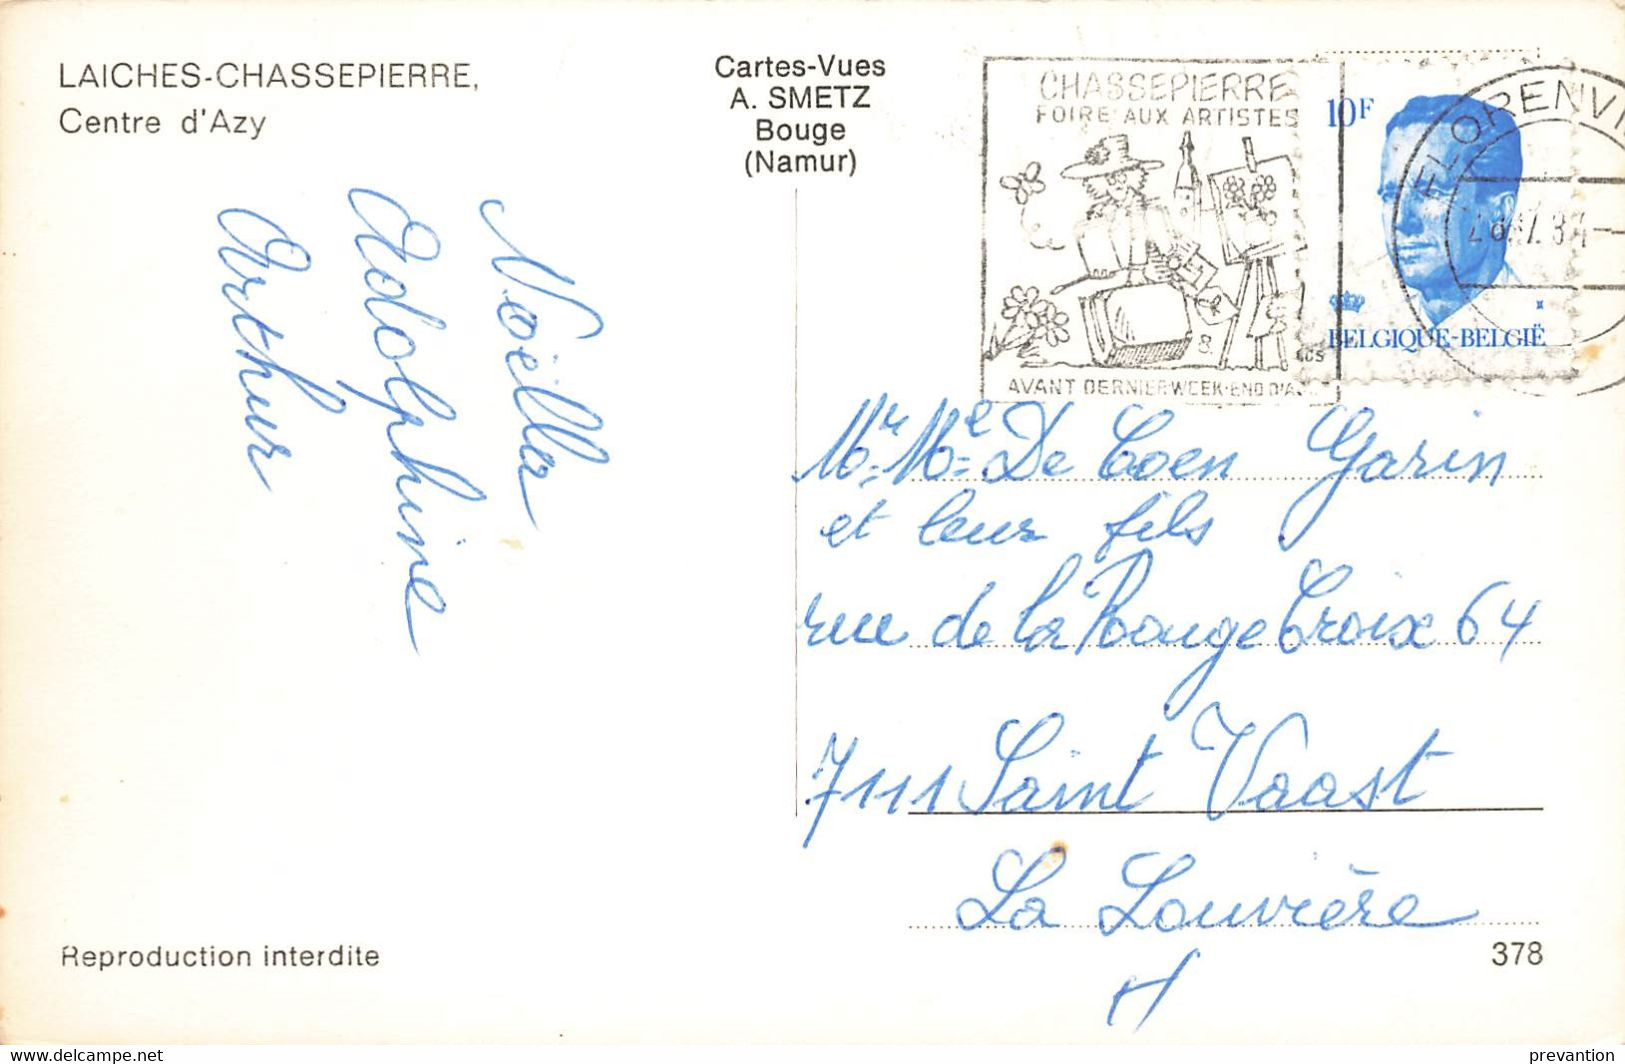 LAICHES-CHASSEPIERRE,
Centre d'Azy
Cartes-Vues
A. SMETZ
Bouge
(Namur)
CHASSEPIERRE
FOIRE AUX ARTISTES
AVANT DERNIER WEEK-END D'A
10F
BELGIQUE-BELGIË
FLORENVI
Noëlla
Adolphine
Arthur
Mr Me De Coen Garin
et leur fils
rue de la Rouge Croix 64
7111 Saint Vaast
La Louvière
Reproduction interdite
378
www.delcampe.net
prevantion